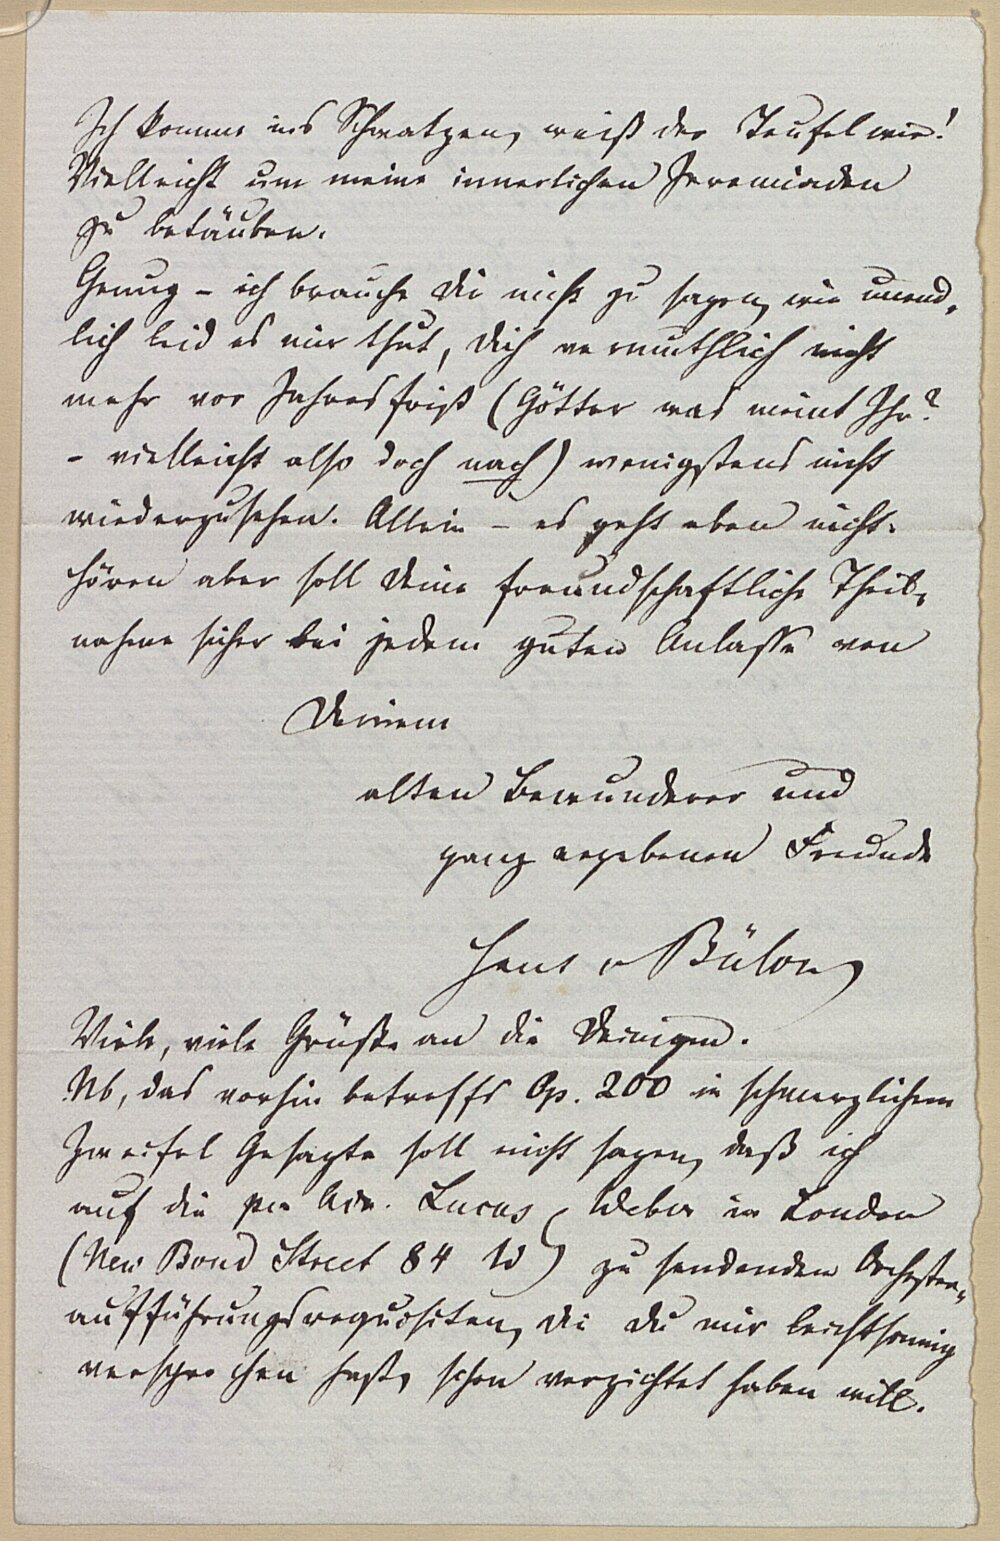 Ich komme ins Schwatzen, weiß der Teufel wie!
Vielleicht um meine innerlichen Jeremiaden
zu betäuben.
Genug – ich brauche Dir nicht zu sagen, wie unend-
lich leid es mir thut, Dich vermuthlich nicht
mehr vor Jahresfrist (Götter was meint Ihr?
– vielleicht also doch nach) wenigstens nicht
wiederzusehen. Allein – es geht eben nicht.
hören aber soll Deine freundschaftliche Theil-
nahme sicher bei jedem guten Anlasse von
Deinem
alten Bewunderer und
ganz ergebenen Freunde
Hans v Bülow
Viele, viele Grüße an die Deinigen.
Nb, das vorhin betreffs Op. 200 in schmerzlichem
Zweifel Gesagte soll nicht sagen, daß ich
auf die per Adr. Lucas, Weber in London
(New Bond Street 84 W) zu sendenden Orchester-
aufführungsrequisiten, die Du mir leichtsinnig
versprochen hast, schon verzichtet haben will.